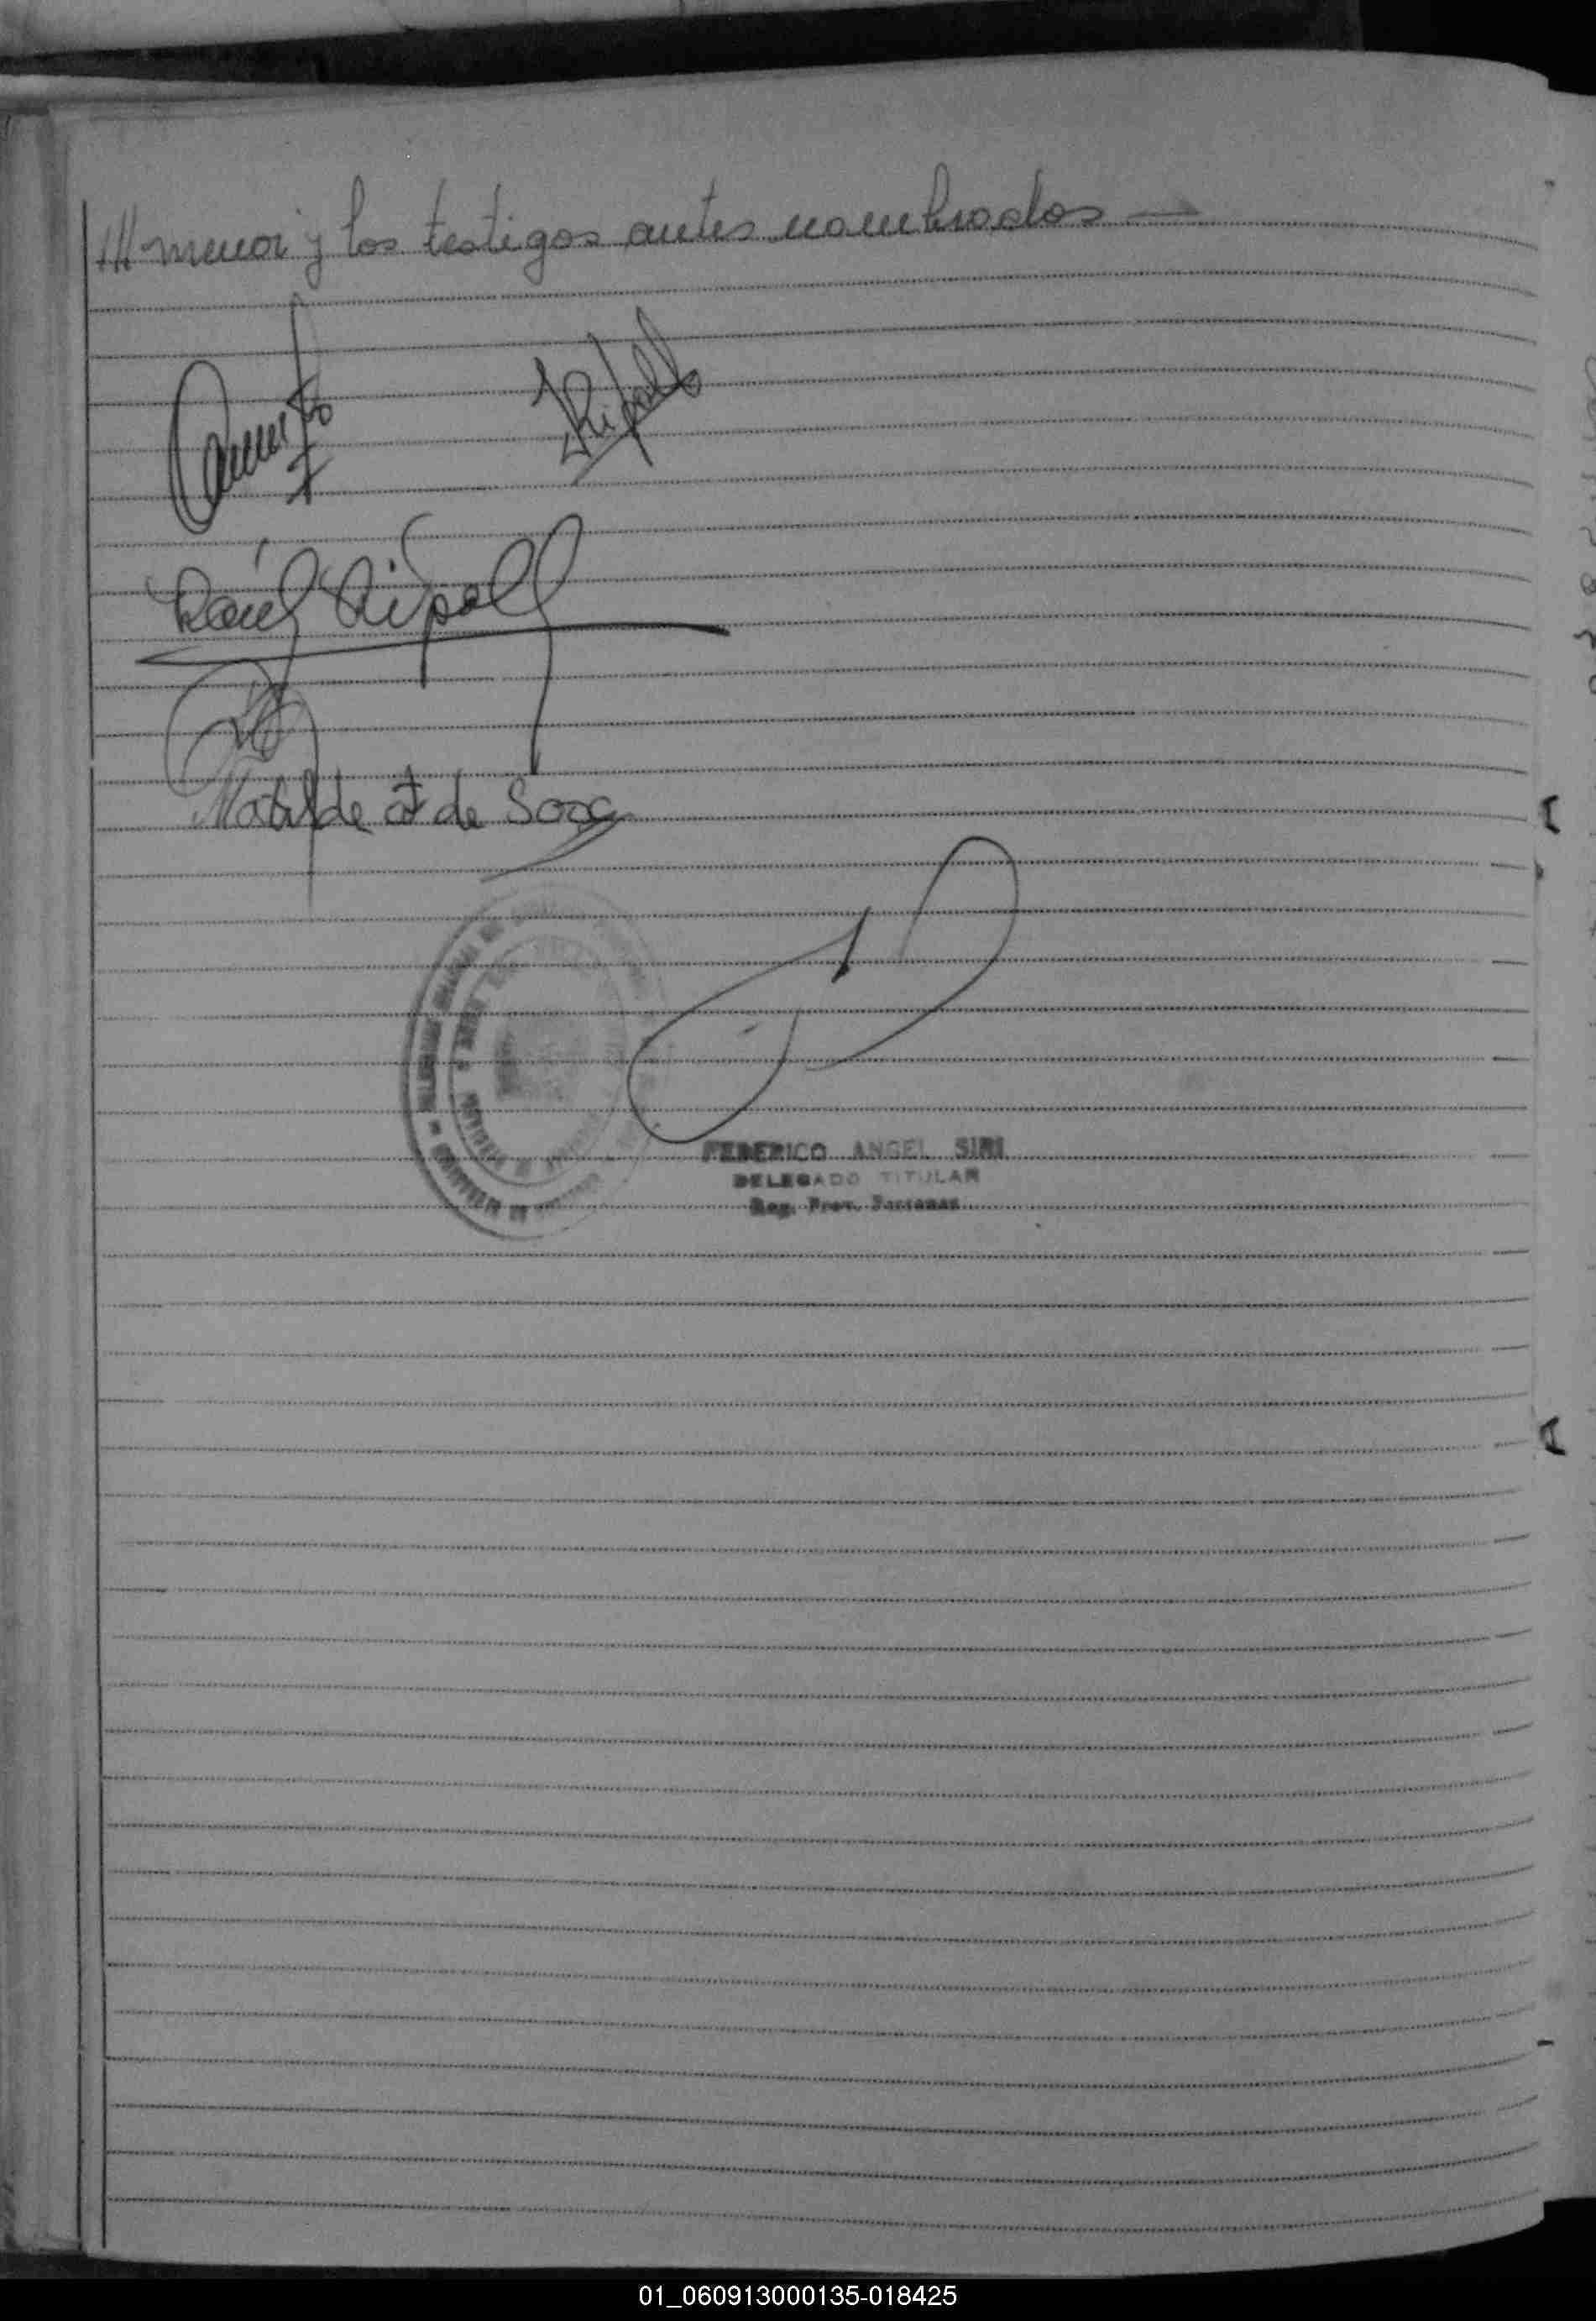 /// menor y los testigos antes nombrados —
Ripoll
Raúl Ripoll
Matilde A de Sosa
FEDERICO ANGEL SIRI
DELEGADO TITULAR
Reg. Prov. Personas
01_060913000135-018425